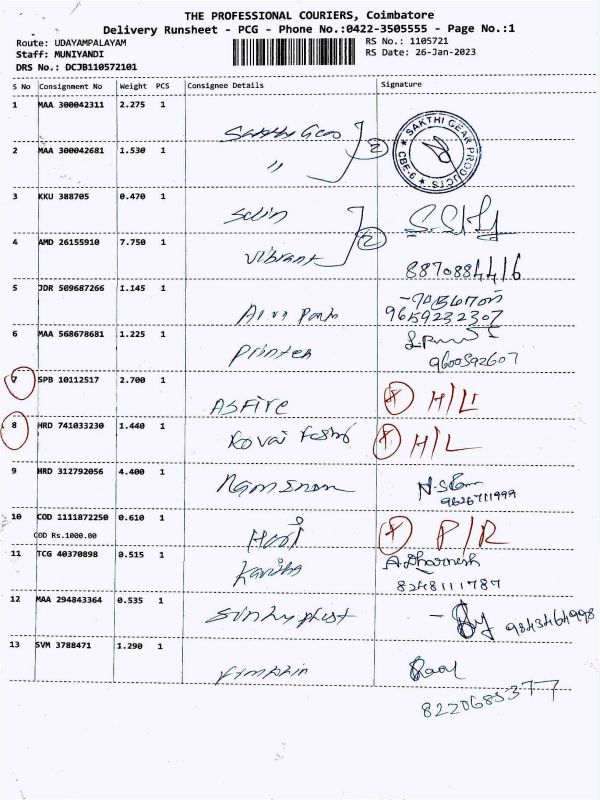 THE PROFESSIONAL COURIERS, Coimbatore
Delivery Runsheet - PCG - Phone No.:0422-3505555 - Page No.:1
Route: UDAYAMPALAYAM
Staff: MUNIYANDI
DRS No.: DCJB110572101
RS No.: 1105721
RS Date: 26-Jan-2023
S No Consignment No Weight PCS Consignee Details Signature
1 MAA 300042311 2.275 1
Sakthi Gear 2
SAKTHI GEAR PRODUCTS CBE-6
2 MAA 300042681 1.530 1
"
3 KKU 388705 0.470 1
2
4 AMD 26155910 7.750 1
Vibrant
8870884416
5 JDR 509687266 1.145 1
9659232307
6 MAA 568678681 1.225 1
Printer
9600592607
7 SPB 10112517 2.700 1
Asfire H/L
8 HRD 741033230 1.440 1
Kovai H/L
9 HRD 312792056 4.400 1
9626711999
10 COD 1111872250 0.610 1
COD Rs.1000.00
Hari P/R
11 TCG 40370898 0.515 1
A.Dharnesh
8248111787
12 MAA 294843364 0.535 1
9843464998
13 SVM 3788471 1.290 1
8220685377